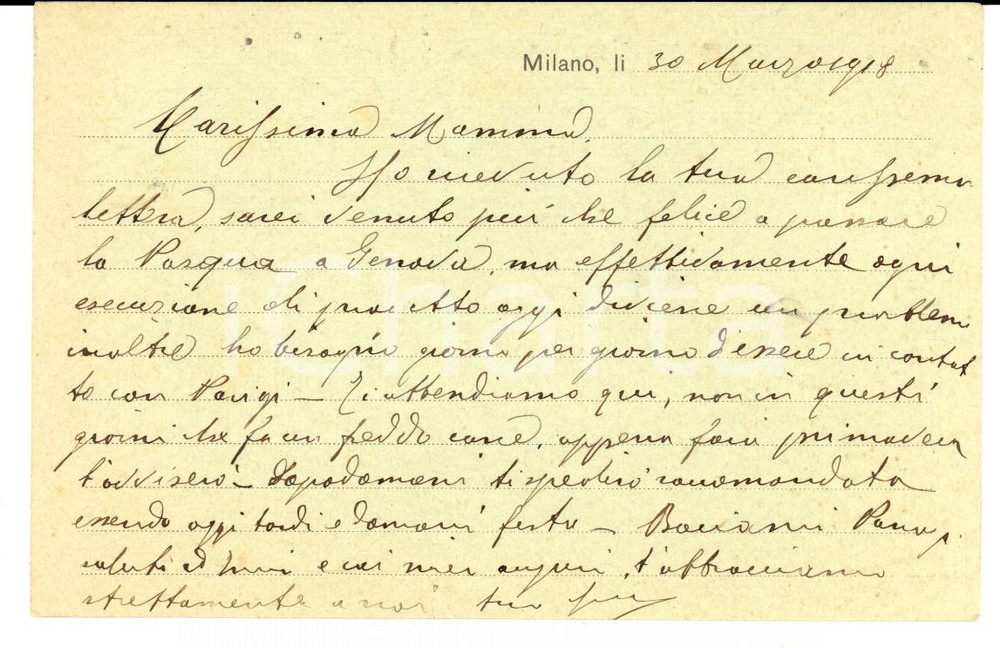 Milano, li 30 Marzo 1918
Carissima Mamma,
Ho ricevuto la tua carissima
lettera, sarei venuto più che felice a passare
la Pasqua a Genova, ma effettivamente ogni
esecuzione di progetto oggi diviene un problema
inoltre ho bisogno giorno per giorno d'essere in contat
to con Parigi — Ti attendiamo qui, non in questi
giorni che fa un freddo cane, appena farà primavera
t'avviserò — Dopodomani ti spedirò raccomandata
essendo oggi tardi e domani festa — Baciami
saluti ad e coi miei auguri, t'abbracciamo
strettamente a noi tuo